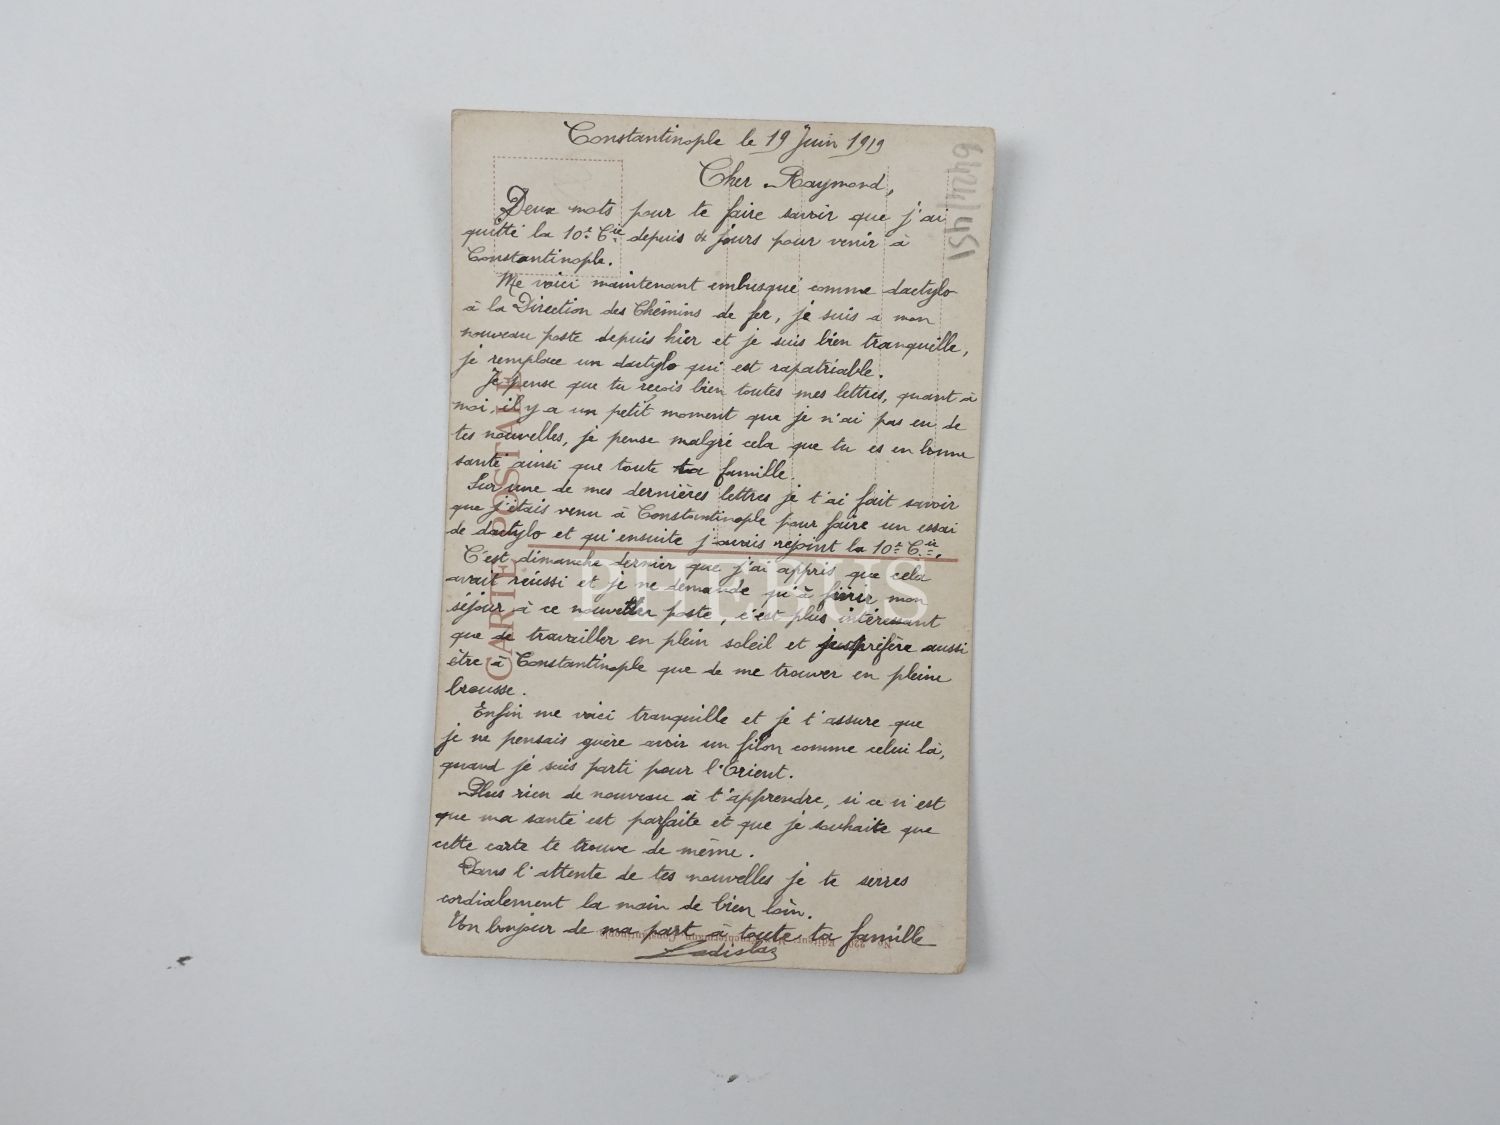 Constantinople le 19 Juin 1919
Cher Raymond,
Deux mots pour te faire savoir que j'ai
quitté la 10e Cie depuis jours pour venir à
Constantinople.
Me voici maintenant embusqué comme dactylo
à la Direction des Chemins de fer, je suis a mon
nouveau poste depuis hier et je suis bien tranquille,
je remplace un dactylo qui est rapatriable.
Je pense que tu reçois bien toutes mes lettres, quant à
moi, il y a un petit moment que je n'ai pas eu de
tes nouvelles, je pense malgré cela que tu es en bonne
santé ainsi que toute ta famille.
Sur une de mes dernières lettres je t'ai fait savoir
que j'étais venu à Constantinople pour faire un essai
de dactylo et qu'ensuite j'avais rejoint la 10e Cie.
C'est dimanche dernier que j'ai appris que cela
avait réussi et je ne demande qu'à finir mon
séjour à ce nouveau poste, c'est plus intéressant
que de travailler en plein soleil et je préfère aussi
être à Constantinople que de me trouver en pleine
brousse.
Enfin me voici tranquille et je t'assure que
je ne pensais guère avoir un filon comme celui là,
quand je suis parti pour l'Orient.
Plus rien de nouveau à t'apprendre, si ce n'est
que ma santé est parfaite et que je souhaite que
cette carte te trouve de même.
Dans l'attente de tes nouvelles je te serres
cordialement la main de bien loin.
Un bonjour de ma part à toute ta famille
Ladislas
CARTE POSTALE
PHEBUS